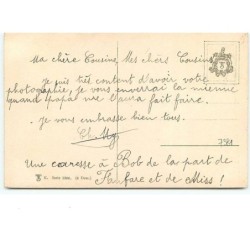 Ma chère Cousine, Mes chers Cousins
je suis très content d'avoir votre
photographie, je vous enverrai la mienne
quand papa me l'aura fait faire.
je vous embrasse bien tous.
Une caresse à Bob de la part de
Fanfare et de Miss !